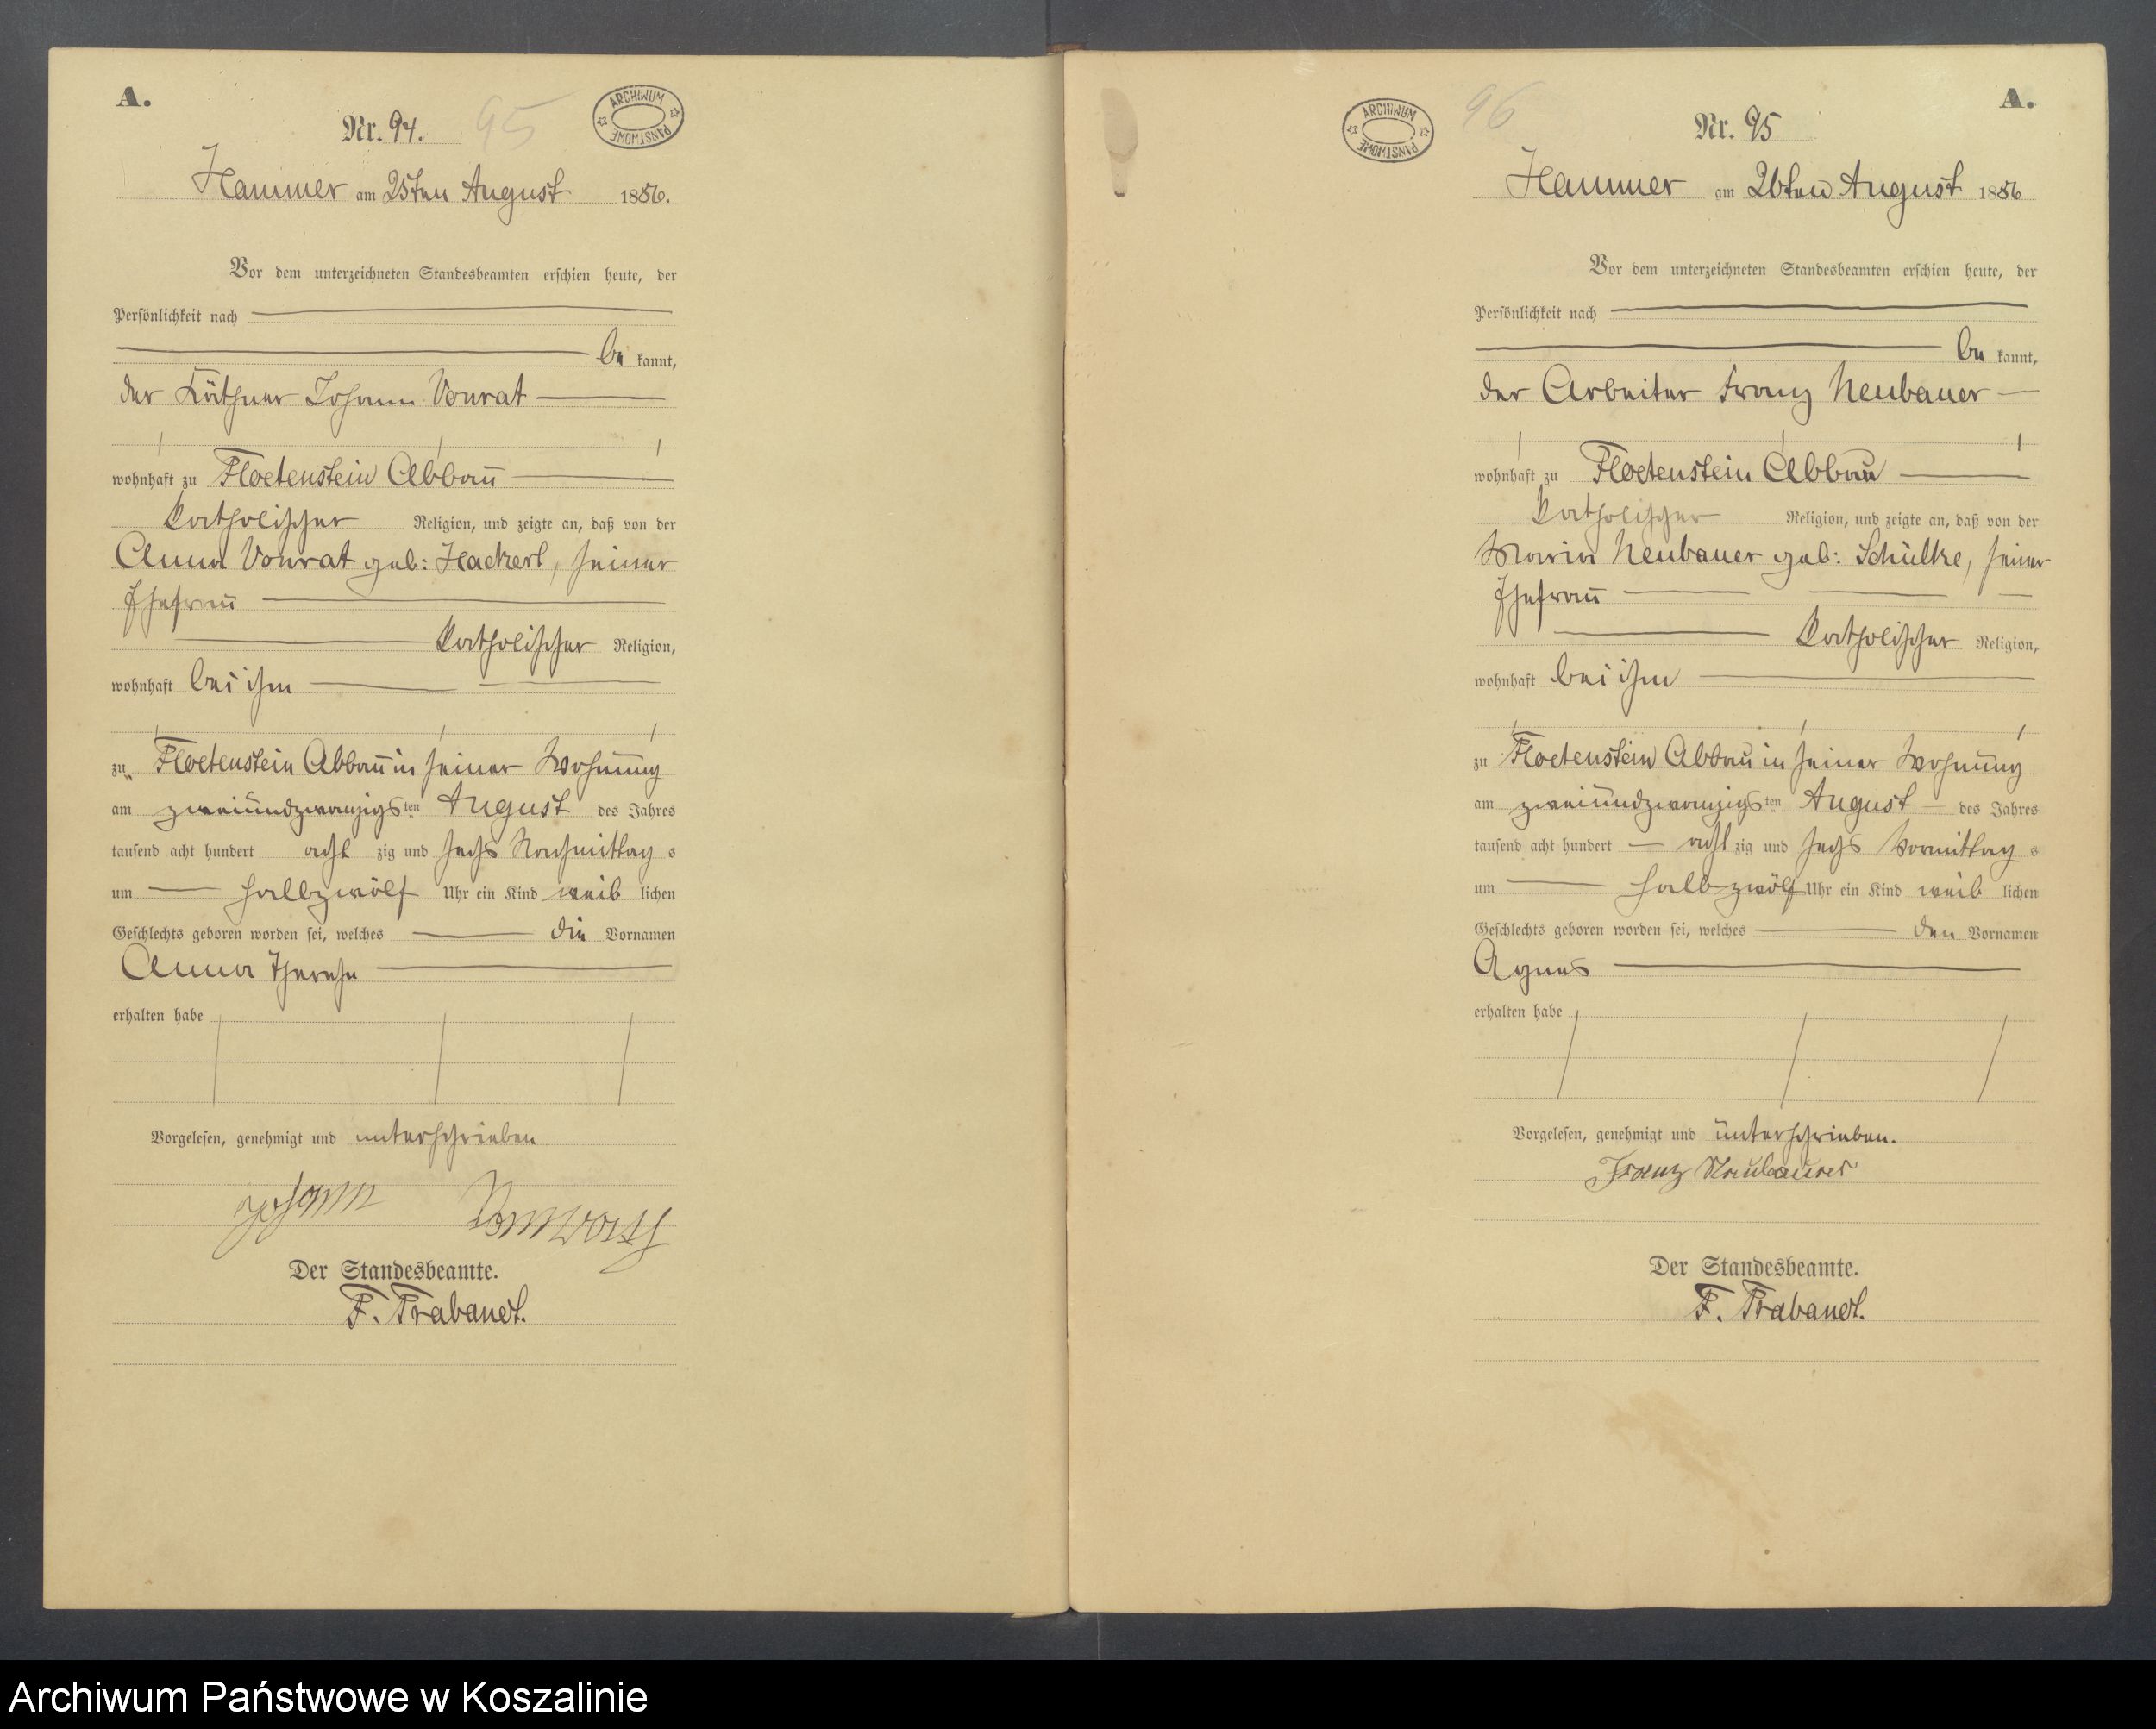 A.
Nr. 94.
95
ARCHIWUM PAŃSTWOWE
Hammer am 25ten August 1886.
Vor dem unterzeichneten Standesbeamten erschien heute, der
Persönlichkeit nach
be kannt,
der Käthner Johann Vonrat
wohnhaft zu Floetenstein Abbau
katholischer Religion, und zeigte an, daß von der
Anna Vonrat geb: Hackert, seiner
Ehefrau
katholischer Religion,
wohnhaft bei ihm
zu Floetenstein Abbau in seiner Wohnung
am zweiundzwanzigs ten August des Jahres
tausend acht hundert acht zig und sechs Nachmittag s
um halbzwölf Uhr ein Kind weib lichen
Geschlechts geboren worden sei, welches die Vornamen
Anna Therese
erhalten habe
Vorgelesen, genehmigt und unterschrieben
Johann
Der Standesbeamte.
F. Trabandt.
A.
96
Nr. 95
ARCHIWUM PAŃSTWOWE
Hammer am 26ten August 1886
Vor dem unterzeichneten Standesbeamten erschien heute, der
Persönlichkeit nach
be kannt,
der Arbeiter Franz Neubauer
wohnhaft zu Floetenstein Abbau
katholischer Religion, und zeigte an, daß von der
Maria Neubauer geb: Schülke, seiner
Ehefrau
katholischer Religion,
wohnhaft bei ihm
zu Floetenstein Abbau in seiner Wohnung
am zweiundzwanzigs ten August des Jahres
tausend acht hundert acht zig und sechs Vormittag s
um halb zwölf Uhr ein Kind weib lichen
Geschlechts geboren worden sei, welches den Vornamen
Agnes
erhalten habe
Vorgelesen, genehmigt und unterschrieben.
Franz Neubauer
Der Standesbeamte.
F. Trabandt.
Archiwum Państwowe w Koszalinie